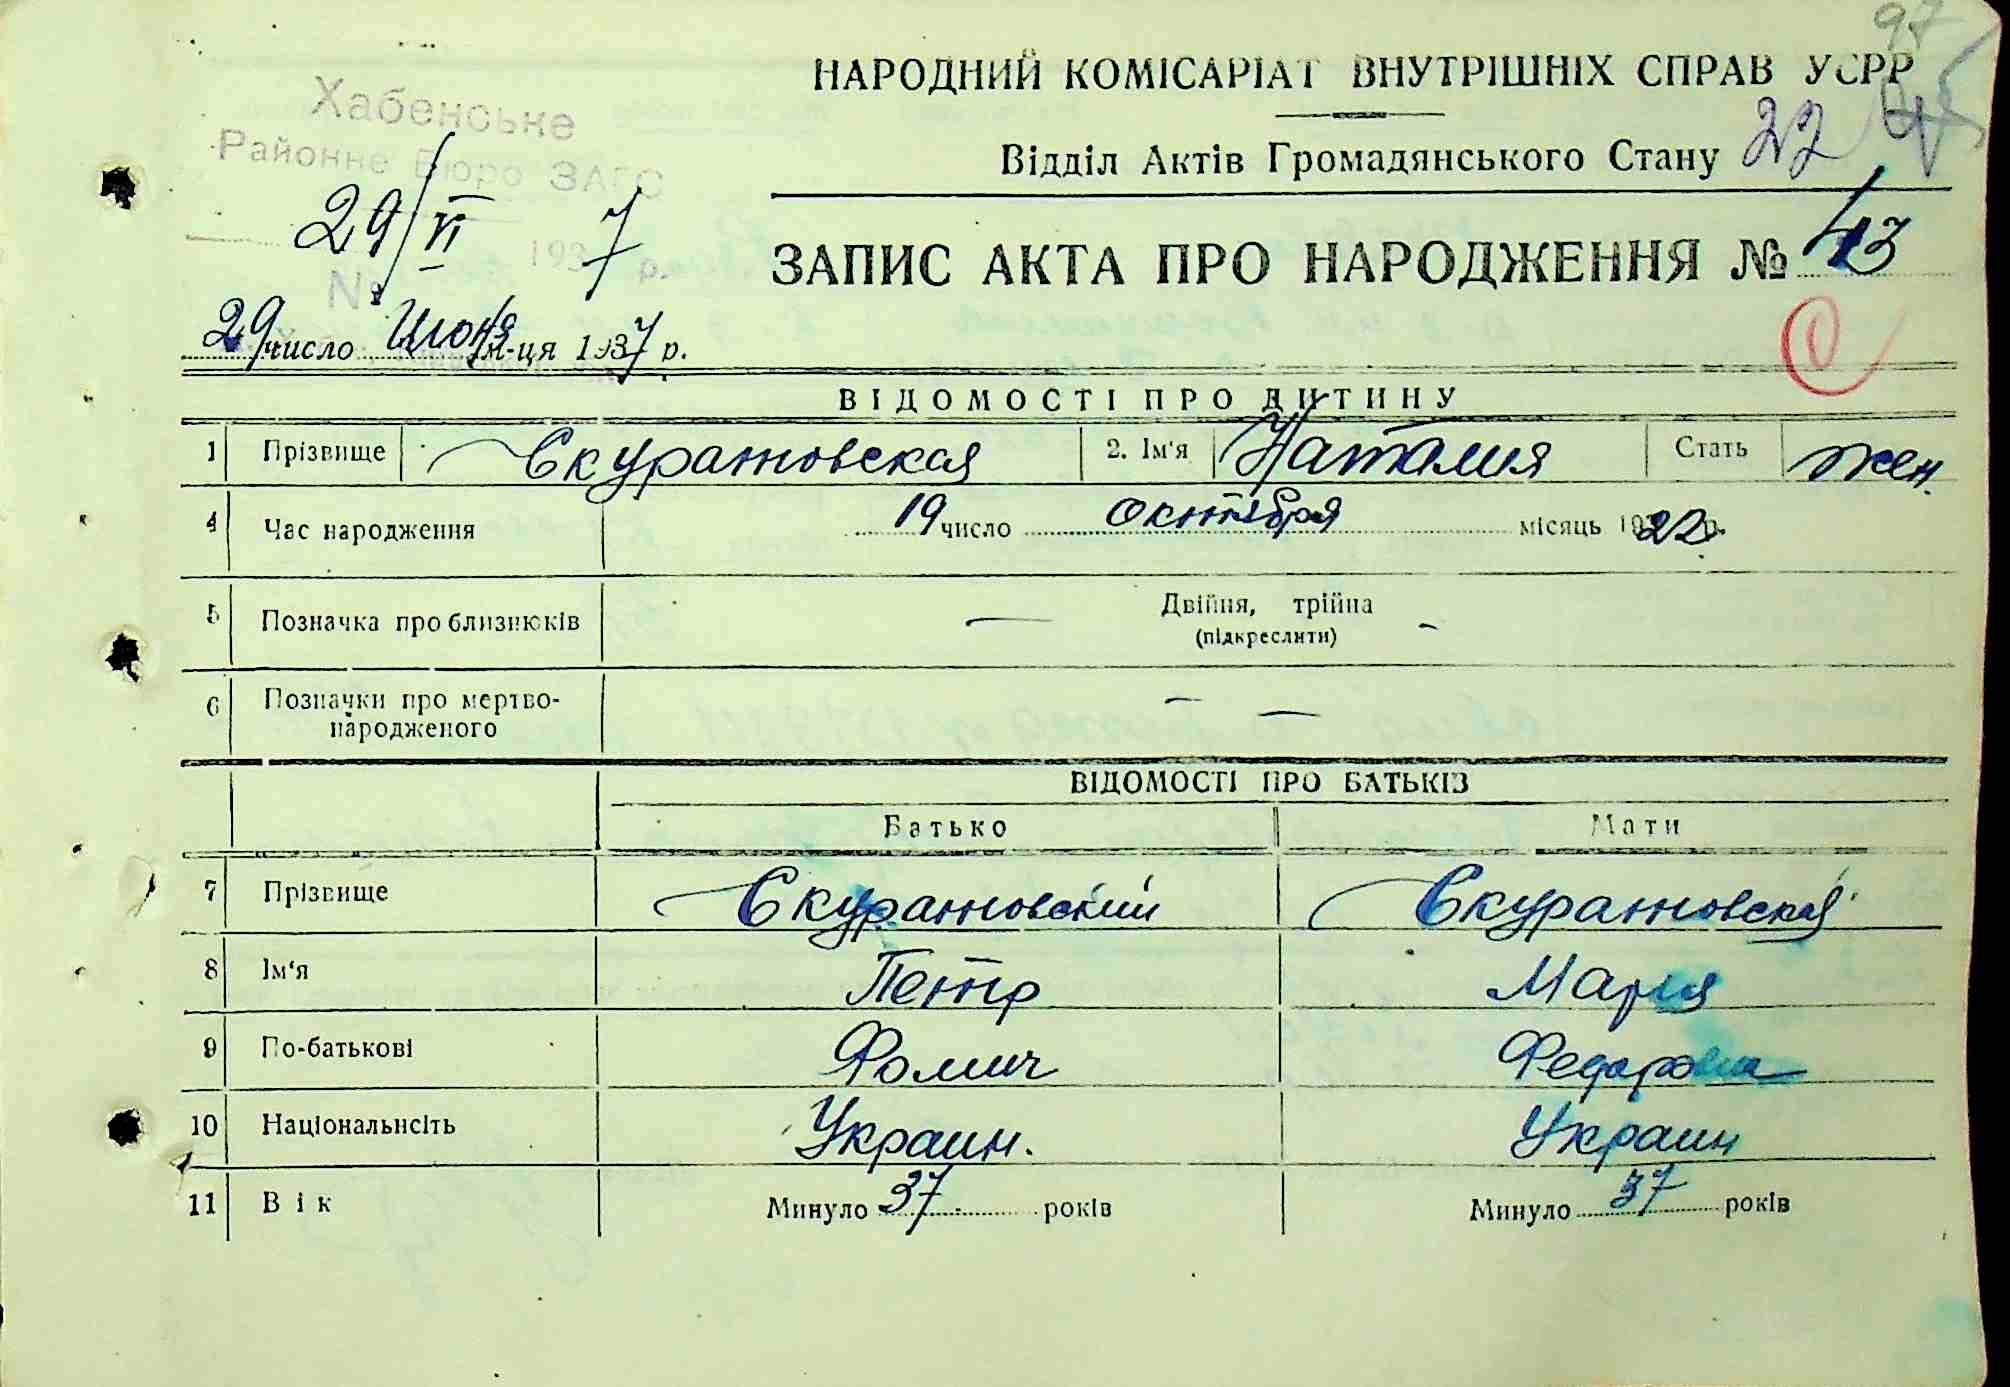 97
НАРОДНИЙ КОМІСАРІАТ ВНУТРІШНІХ СПРАВ УСРР
Хабенське
Районне Бюро ЗАГС
Відділ Актів Громадянського Стану 22
29/VI 1937 р.
№
ЗАПИС АКТА ПРО НАРОДЖЕННЯ № 43
29 число Июня м-ця 1937 р.
ВІДОМОСТІ ПРО ДИТИНУ
1 Прізвище Скуратовская 2. Ім'я Наталия Стать жен.
4 Час народження 19 число октября місяць 1922 р.
5 Позначка про близнюків — Двійня, трійна —
(підкреслити)
6 Позначки про мертво-
народженого — —
ВІДОМОСТІ ПРО БАТЬКІВ
Батько Мати
7 Прізвище Скуратовский Скуратовская
8 Ім'я Петр Мария
9 По-батькові Фомич Федоровна
10 Національнсіть Украин. Украин
11 Вік Минуло 37 років Минуло 37 років